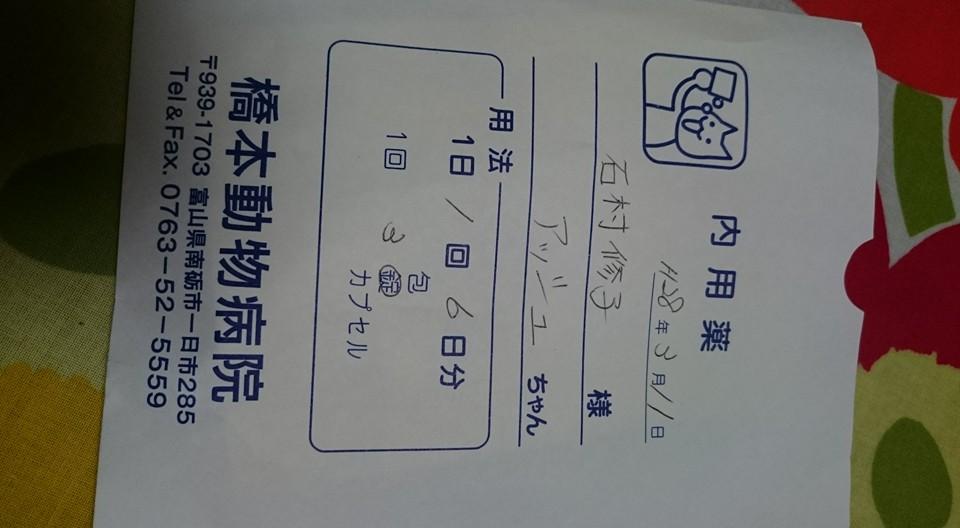 内用薬
H28年3月11日
石村修子 様
アッシュ ちゃん
用法
1日 1回 6日分
包
1回 3 錠
カプセル
橋本動物病院
〒939-1703 富山県南砺市一日市285
Tel&Fax. 0763-52-5559